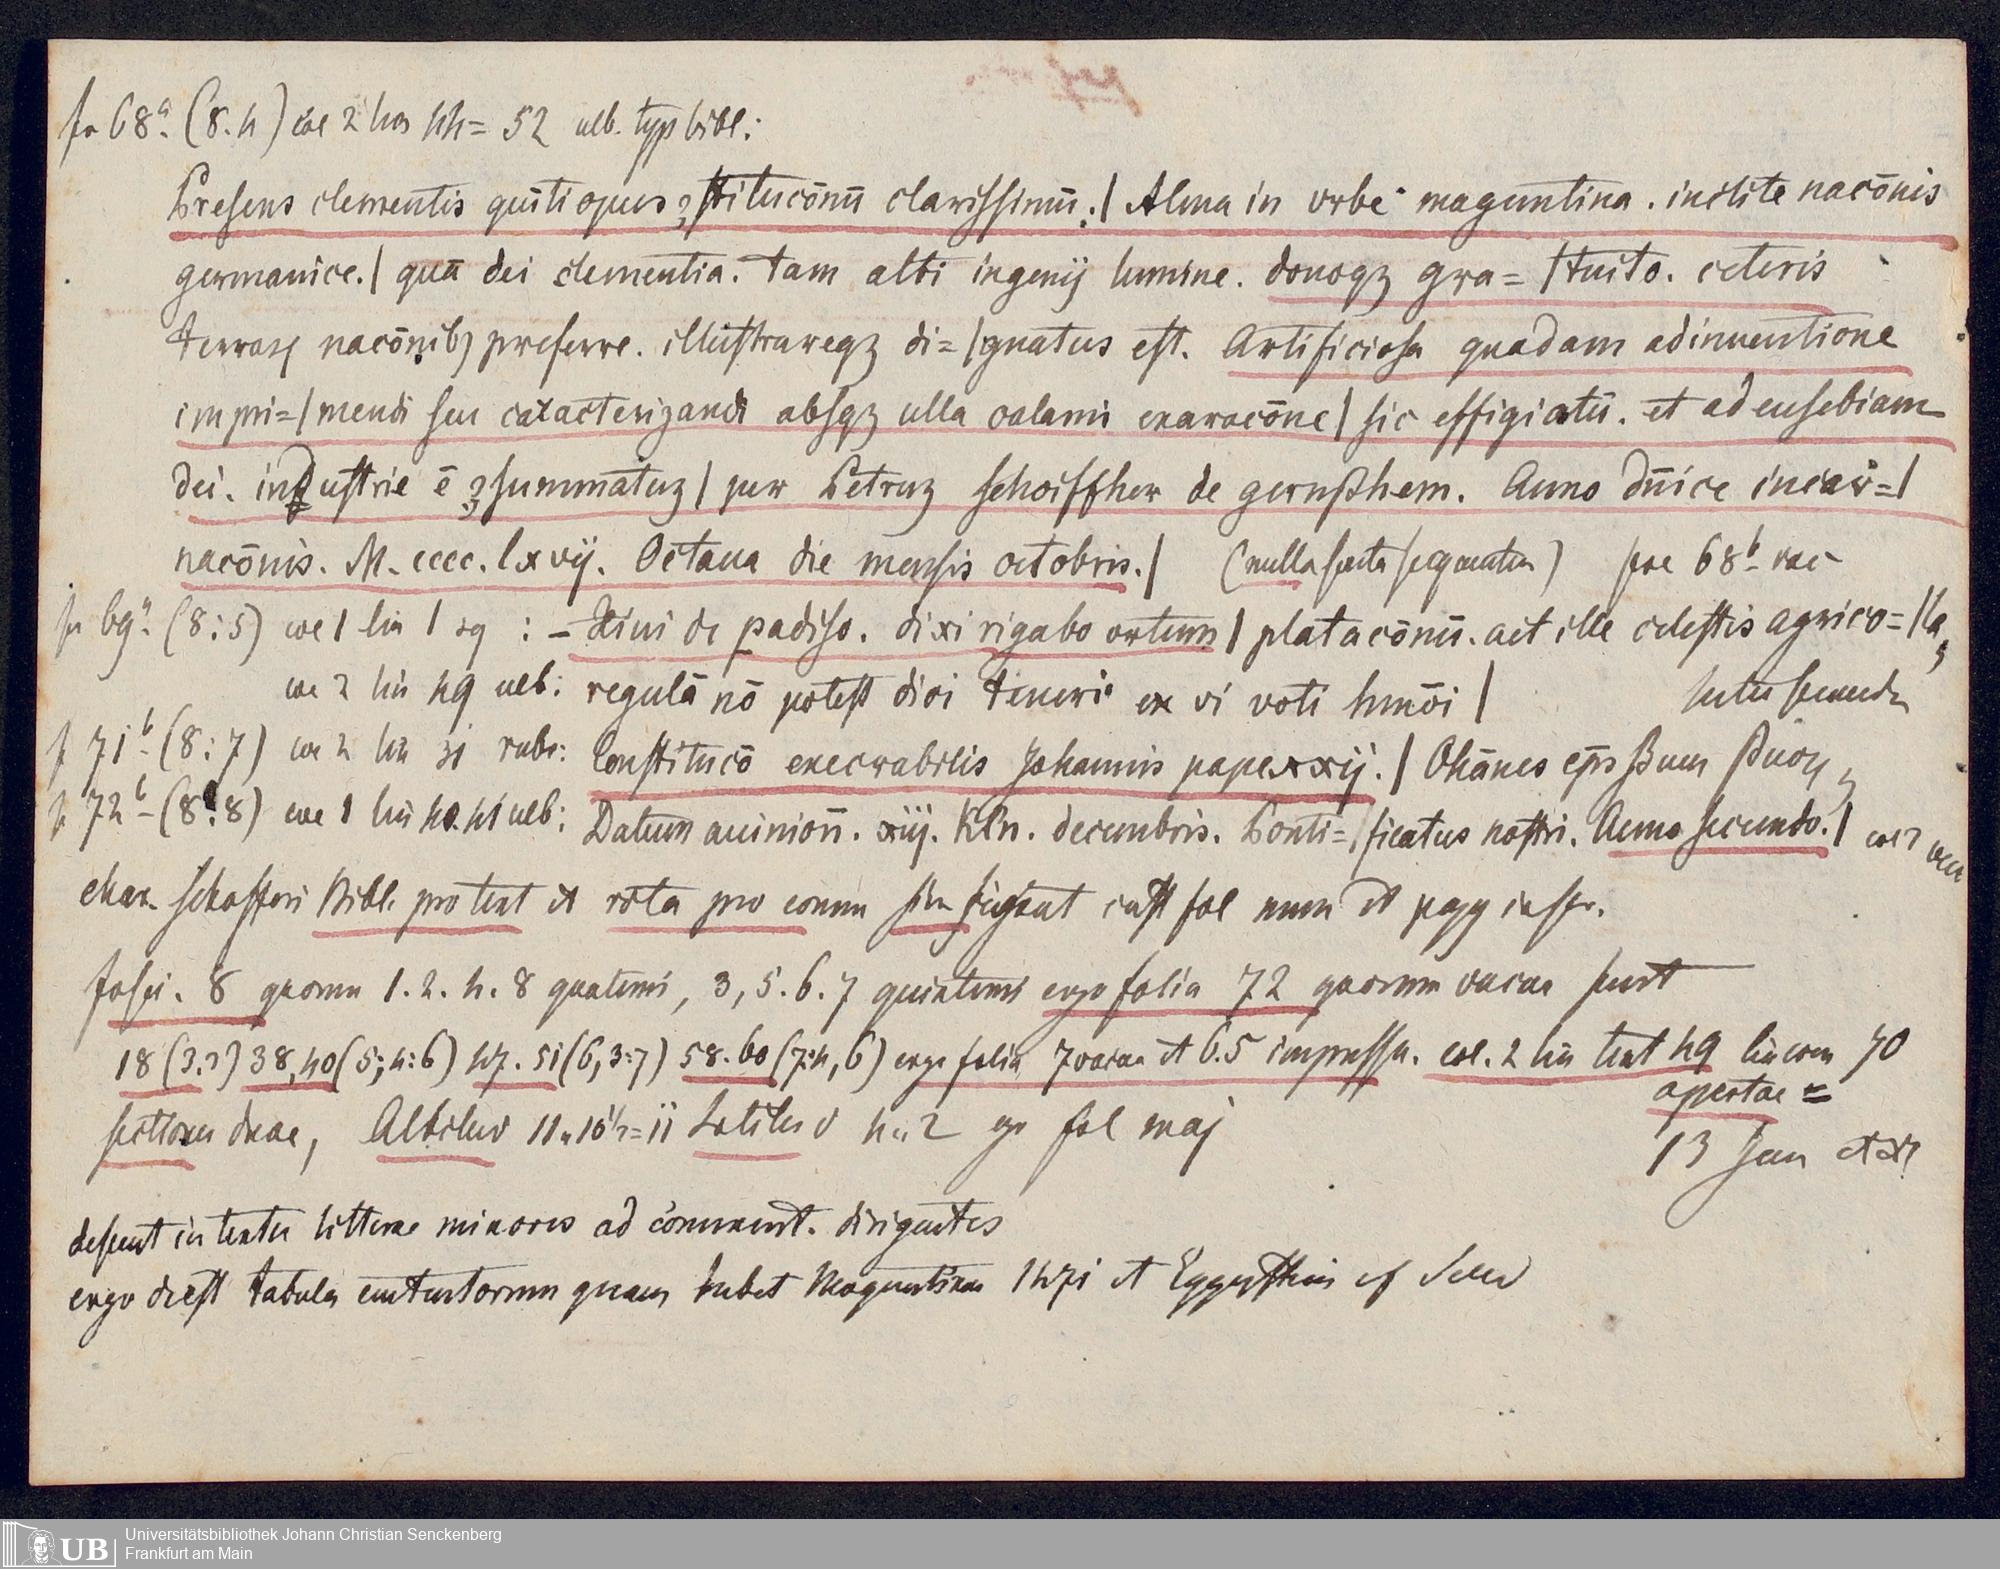 fo 68a. (8.4) col 2 lin 44 = 52 rub. typ bibl:
Presens clementis quīti opus ꝯstitucōnū clarissimū. | Alma in vrbe maguntina. inclite nacōnis
germanice. | quā dei clementia. tam alti ingenij lumine. donoqz gra= | tuito. ceteris
terraꝝ nacōnibꝫ preferre. illustrareqz di= | gnatus est. Artificiosa quadam adinuentione
impri= | mendi seu caracterizandi absqz ulla calami exaracōne | sic effigiatū. et ad eusebiam
dei. industrie ē ꝯsummatuz | per Petruz schoiffher de gernßhem. Anno dn̄ice incar= |
nacōnis. M. cccc. lxvij. Octaua die mensis octobris. | (nulla scuta sequuntur) fol 68b. vac
fo 69a. (8:5) col 1 lin 1 sq : – Exiui de padiso. dixi rigabo ortum | platacōnū. ait ille celestis agrico= | la,
col 2 lin 49 rub: regulā nō potest dici teneri ex vi voti hmōi |
f 71b. (8:7) col 2 lin 31 rubr: Constitucō execrabilis Johannis pape xxij. | Ohānes ep̄s
f 72b – (8:8) col 1 lin 40. 41 rub: Datum auinion̄. xiij. Kln. decembris. Ponti= | ficatus nostri. Anno secundo. | col 2 vac
char. Schofferi Bibl. pro text et rota pro comm sign cust fol num et pagg
fasci. 8 quorum 1. 2. 4. 8 quaterni, 3, 5. 6. 7 quinterni ergo folia 72 quorum vacua sunt
18 (3:2) 38, 40 (5; 4:6) 47. 51 (6, 3:7) 58. 60 (7:4, 6) ergo folia 7 vacua et 65 impressa. col. 2 lin text 49 linearum 70
apertae =
sectionis duae, Altitudo 11 " 10 1/2 = 11 Latitudo 4 " 2 gr fol maj
13 Jan
desunt in textu litterae minores ad comment. dirigentes
ergo deest tabula quam habet Moguntina 1471 et Eggesthein cf